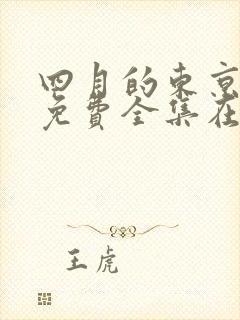 四月的东京
免费全集在
王虎